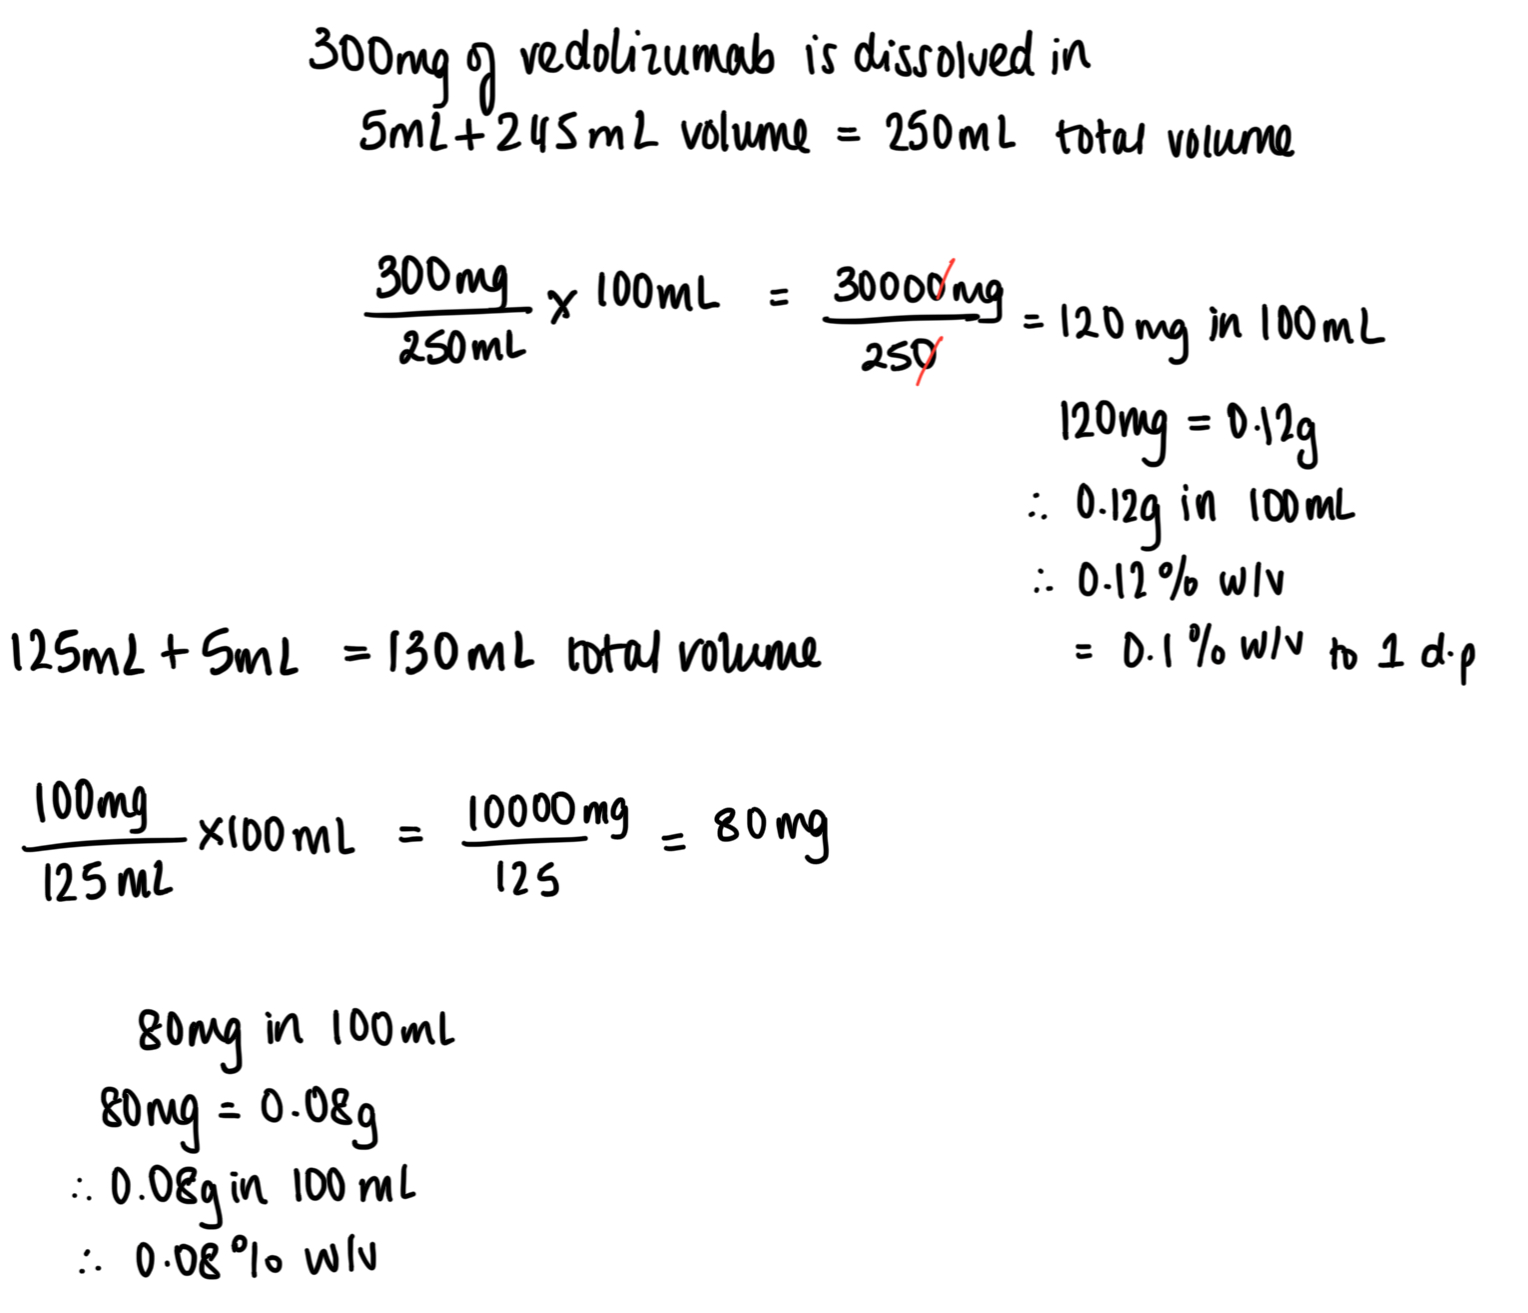 300mg of vedolizumab is dissolved in
5mL + 245mL volume = 250mL total volume
300mg / 250mL × 100mL = 30000mg / 250 = 120mg in 100mL
120mg = 0.12g
∴ 0.12g in 100mL
∴ 0.12% w/v
= 0.1% w/v to 1 d.p
125mL + 5mL = 130mL total volume
100mg / 125mL ×100mL = 10000mg / 125 = 80mg
80mg in 100mL
80mg = 0.08g
∴ 0.08g in 100mL
∴ 0.08% w/v